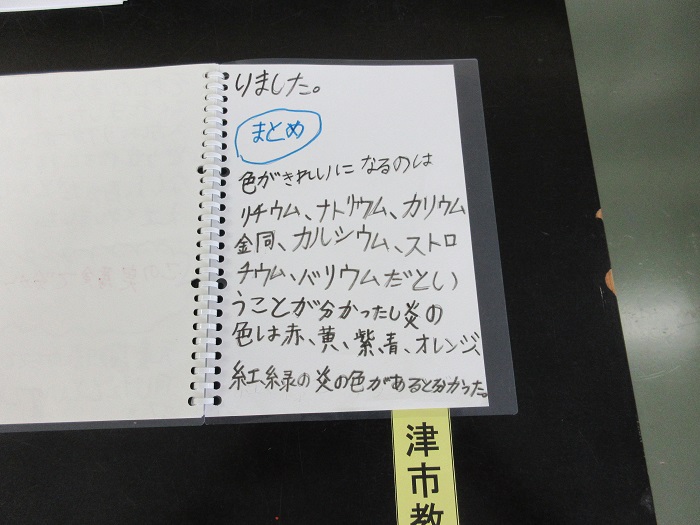 りました。
まとめ
色がきれいになるのは
リチウム、ナトリウム、カリウム
銅、カルシウム、ストロ
チウム、バリウムだとい
うことが分かったし炎の
色は赤、黄、紫、青、オレンジ、
紅、緑の炎の色があると分かった。
津市教